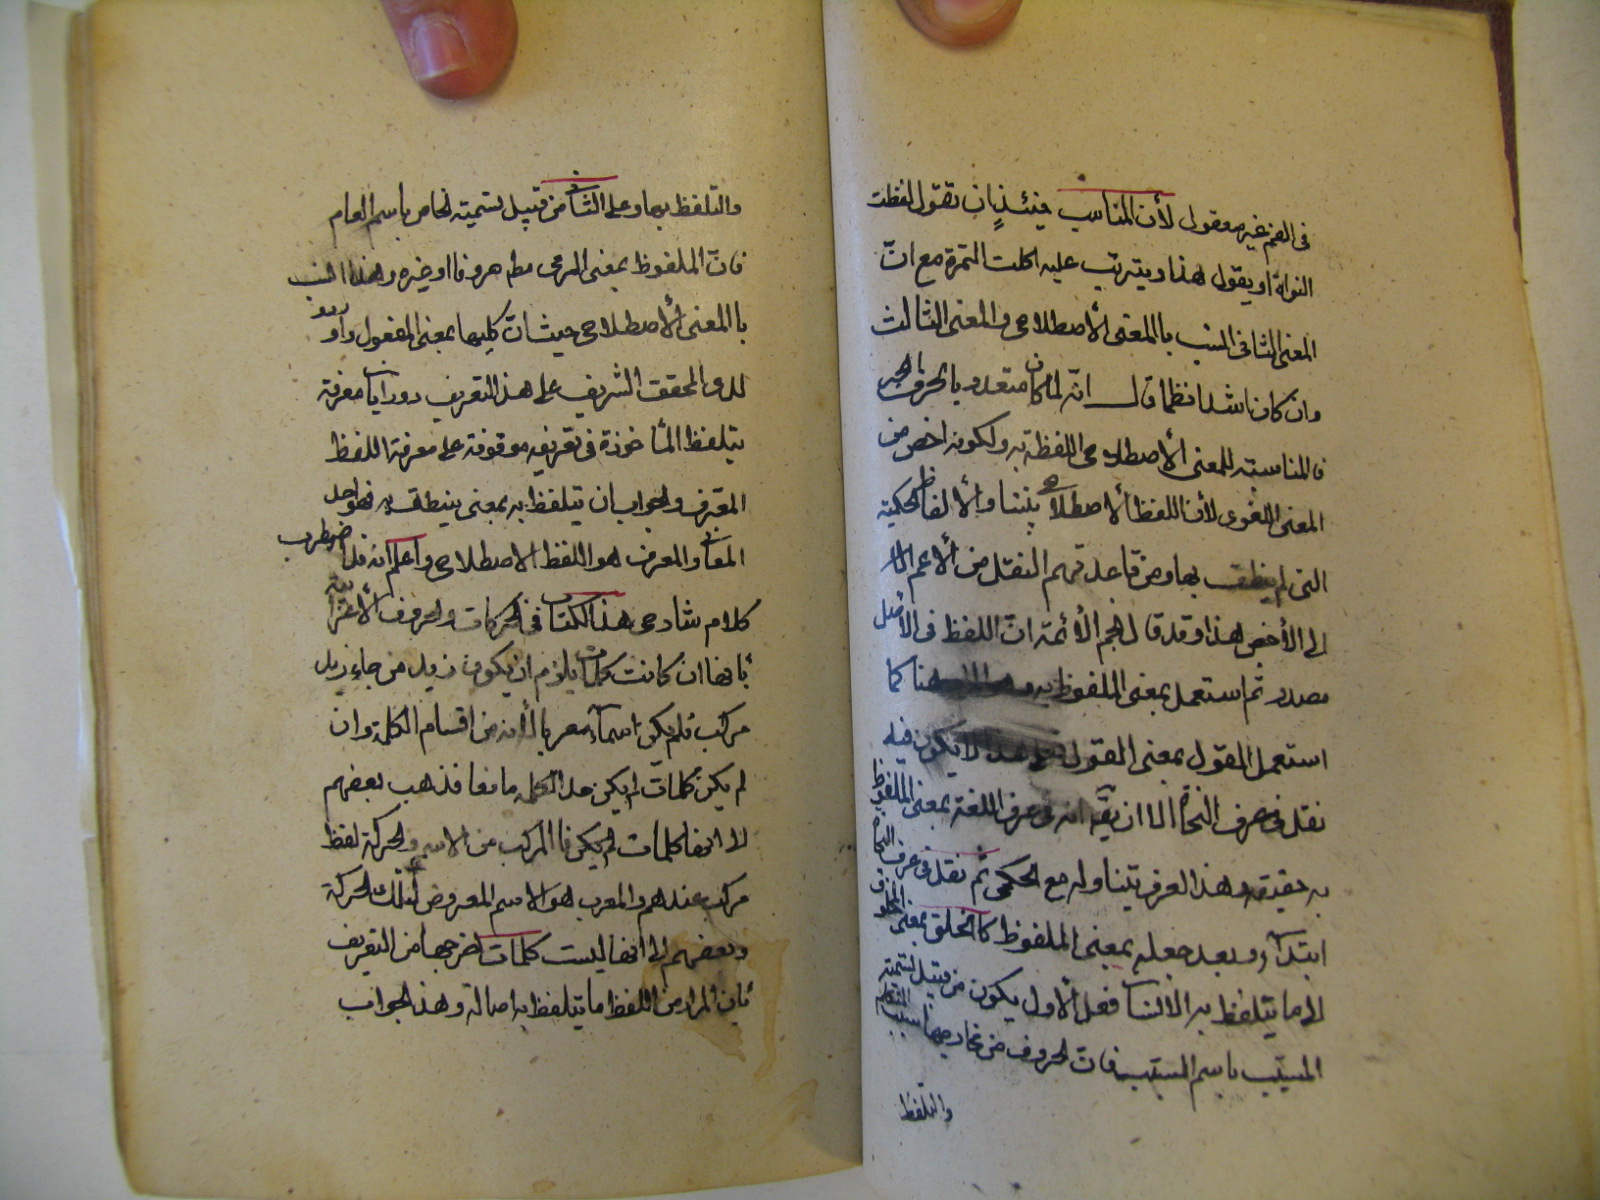 فى الفم غير معقول لأن المناسب حينئذٍ ان تقول لفظت
النواة او يقول هذا ويترتب عليه اكلت التمرة مع انّ
المعنى الثانى انسب بالمعنى الأصطلاحى والمعنى الثالث
وان كان ناشدا فظما قال انه لما كان متعديا بالحرف
فالمناسبة للمعنى الأصطلاحى اللفظة به ولكونه اخص من
المعنى اللغوى لأن اللفظ الأصطلاحى يتناول الألفاظ الحكمية
التى لم ينطق بها ومن قاعدتهم النقل من الأعم
الى الأخص هذا وقد قال نجم الأئمة ان اللفظ فى الأصل
مصدر ثم استعمل بمعنى الملفوظ به هنا كما
استعمل القول بمعنى المقول لا يكون فيه
نقل فى عرف النحاة الا ان يقال انه فى عرف اللغة بمعنى الملفوظ
به حقيقة وهذا العرف يتناوله مع الحكمى ثم نقل فى عرف النحاة
ابتداء وبعد جعله بمعنى الملفوظ كالخلق بمعنى المخلوق
الى ما يتلفظ به الانسان فعلى الأول يكون من قبيل تسمية
المسبب باسم السبب فان الحروف من مخارجها سبب التلفظ
والتلفظ
والتلفظ بها وعلى الثانى من قبيل تسمية الخاص باسم العام
فان الملفوظ بمعنى المرمى مطم حروفا او غيره وهذا انسب
بالمعنى الأصطلاحى حيث ان كليهما بمعنى المفعول واورد
المحقق الشريف على هذا التعريف دورا بان معرفة
يتلفظ المأخوذة فى تعريفه موقوفة على معرفة اللفظ
المعرف والجواب ان يتلفظ به بمعنى ينطق به فهو احد
المعانى والمعرف هو اللفظ الاصطلاحى واعلم انه قد اضطرب
كلام شارحى هذا الكتاب فى الحركات والحروف الأعرابية
بانها ان كانت كلمات يلزم ان يكون زيد من جاء زيد
مركب فلم يكن اسما معربا لأنه من اقسام الكلمة وان
لم يكن كلمات لم يكن حد الكلمة مانعا فذهب بعضهم
الى انها كلمات لم يكن فالمركب من الاسم والحركة لفظ
مركب عندهم والمعرب هو الاسم المعروض لتلك الحركة
وبعضهم الى انها ليست كلمات اخرجها من التعريف
بان المراد من اللفظ ما يتلفظ به اصالة وهذا الجواب